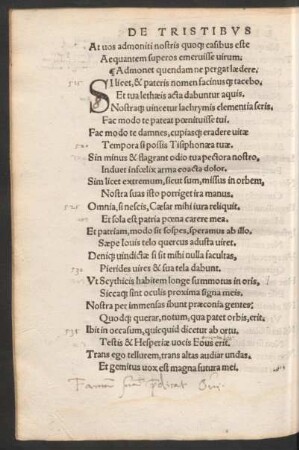 DE TRISTIBVS
At uos admoniti nostris quoq; casibus este
Aequantem superos emeruisse uirum.
¶Admonet quendam ne pergat lædere.
SI licet, & pateris nomen facinusq; tacebo,
Et tua lethæis acta dabuntur aquis.
Nostraq; uincetur lachrymis clementia seris,
Fac modo te pateat pœnituisse tui.
Fac modo te damnes, cupiasq; eradere uitæ
Tempora si possis Tisiphonæa tuæ.
Sin minus & flagrant odio tua pectora nostro,
Induet infœlix arma coacta dolor.
Sim licet extremum, sicut sum, missus in orbem,
Nostra suas isto porriget ira manus.
520 Omnia, si nescis, Cæsar mihi iura reliquit,
Et sola est patria pœna carere mea.
Et patriam, modo sit sospes, speramus ab illo.
Sæpe Iouis telo quercus adusta uiret.
Deniq; uindictæ si sit mihi nulla facultas,
530 Pierides uires & sua tela dabunt.
Vt Scythicis habitem longe summotus in oris,
Siccaq; sint oculis proxima signa meis.
Nostra per immensas ibunt præconia gentes,
Quodq; querar, notum, qua patet orbis, erit.
535 Ibit in occasum, quicquid dicetur ab ortu,
Testis & Hesperiæ uocis Eous erit.
Trans ego tellurem, trans altas audiar undas,
Et gemitus uox est magna futura mei.